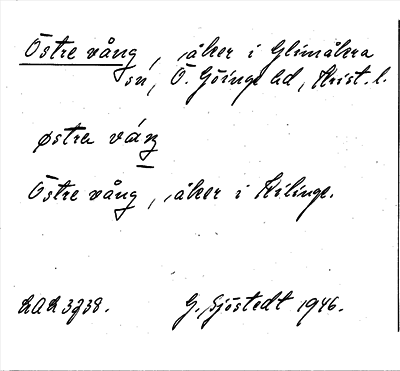 Östre vång, åker i Glimåkra
sn, Ö. Göinge hd, Krist. l.
østra váŋ
Östre vång, åker i Kilinge.
LAL 3938.    G. Sjöstedt 1946.